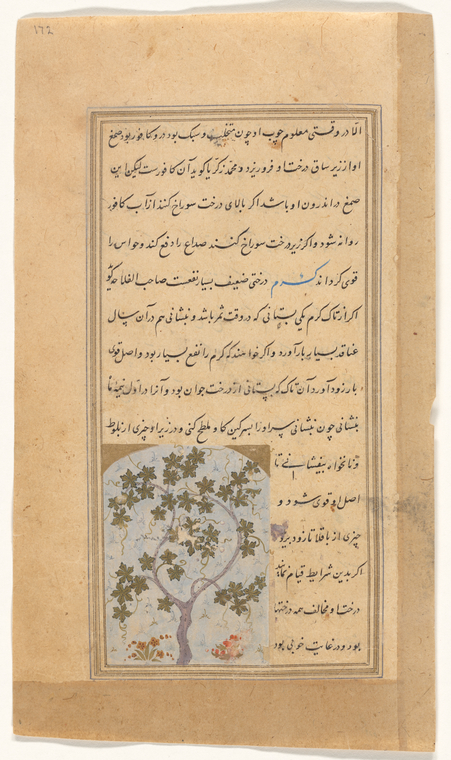 ۱۷۲
الّا در وقتی معلوم چوب او چون متخلخل و سبک بود در وکافور بود صمغ
او از زیر ساق درخت او فرو ریزد و محمد زکریا کوید آن کافورست لیکن این
صمغ در اندرون او باشد اکر بالای درخت سوراخ کنند از آب کافور
روانه شود و اکر زیر درخت سوراخ کنند صداع را دفع کند و حواس را
قوی کرداند کرم درختی ضعیف بسیار نفعست صاحب الفلاحه کو
اکر از تاک کرم یکی بستانی که در وقت ثمر باشد و بنشانی هم در آن سال
عناقید بسیار بار آورد و اکر خواهند که کرم را نفع بسیار بود و اصل قوی
بار زود آورد آن تاک که بستانی از درخت جوان بود و آنرا در اول نیمه ماه
بنشانی چون بنشانی سر او را بسرکین کاو ملطخ کنی و در زیر او چیزی از بلوط
و نانخواه بیفشانی تا
اصل او قوی شود و
چیزی از باقلا تا زود برو
اکر بدین شرایط قیام نماند
درخت او مخالف همه درختها
بود و در غایت خوبی بود